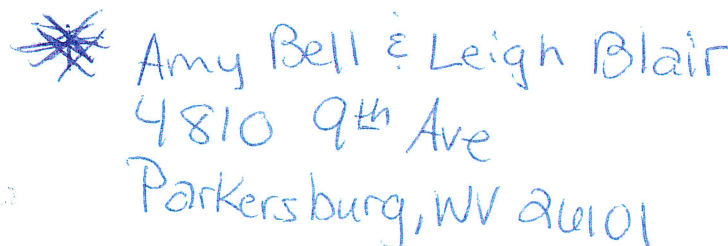 Amy Bell & Leigh Blair
4810 9th Ave
Parkersburg, WV 26101